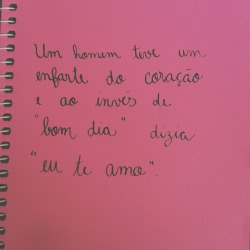 Um homem teve um
enfarte do coração
e ao invés de
"bom dia" dizia
"eu te amo".